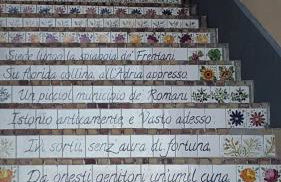 Siede lungo la spiaggia de' Frentani
Su florida collina all'Adria appresso
Un picciol municipio de' Romani
Istonio anticamente e Vasto adesso
Ivi sortii, senz'aura di fortuna
Da onesti genitori un'umil cuna